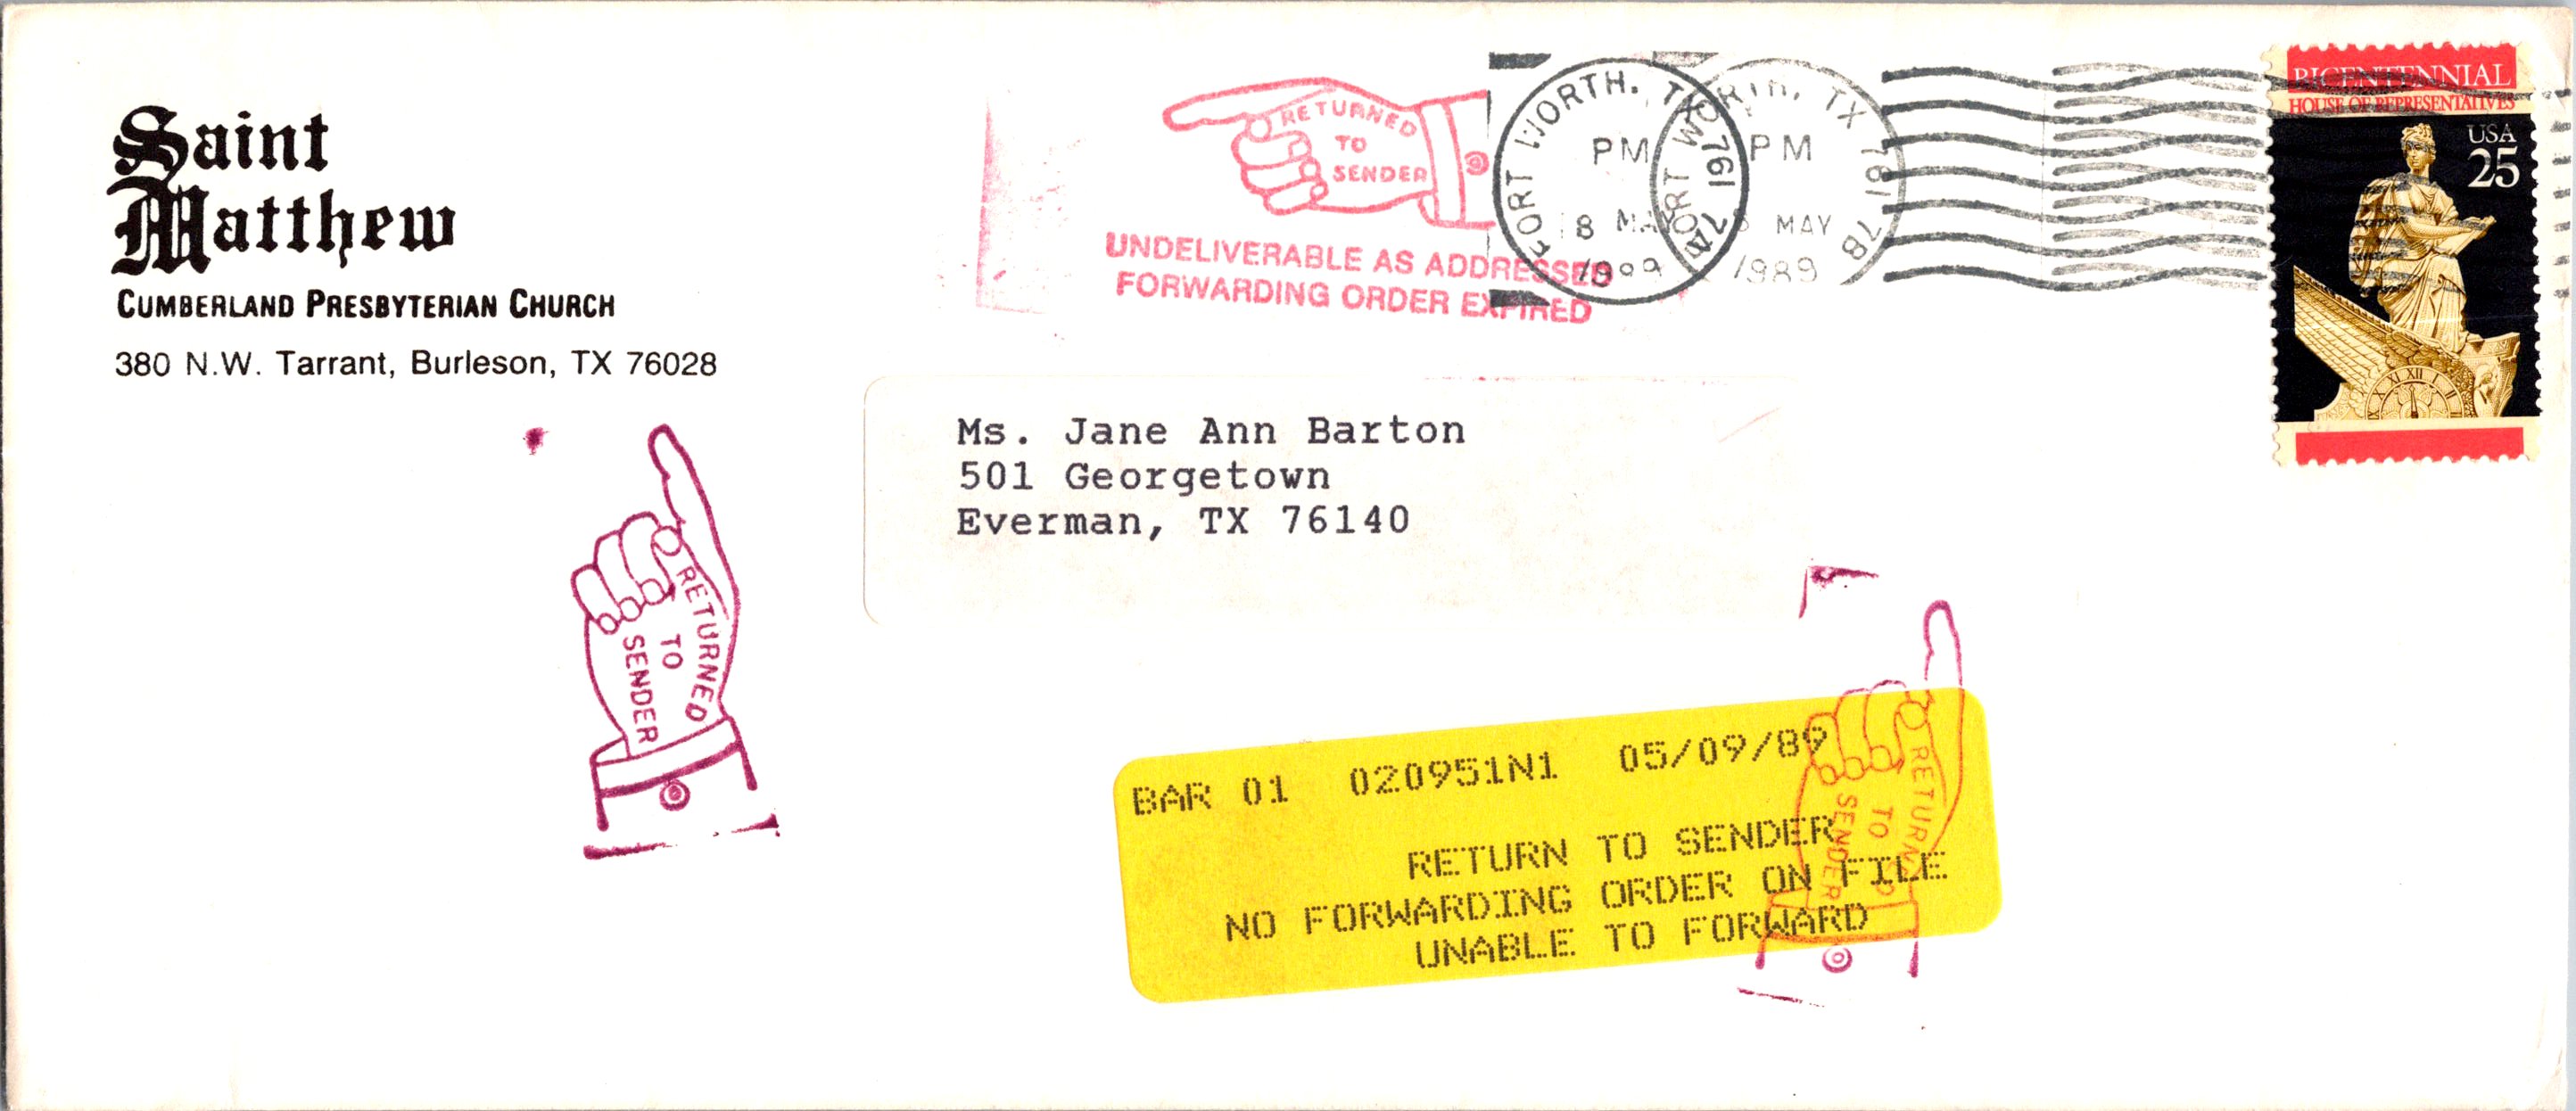 Saint
Matthew
CUMBERLAND PRESBYTERIAN CHURCH
380 N.W. Tarrant, Burleson, TX 76028
RETURNED
TO
SENDER
UNDELIVERABLE AS ADDRESSED
FORWARDING ORDER EXPIRED
FORT WORTH, TX 761 7A
PM
8 MAY
1989
FORT WORTH, TX 761 7B
PM
8 MAY
1989
BICENTENNIAL
HOUSE OF REPRESENTATIVES
USA
25
XI XII I II
Ms. Jane Ann Barton
501 Georgetown
Everman, TX 76140
RETURNED
TO
SENDER
BAR 01 020951N1 05/09/89
RETURN TO SENDER
NO FORWARDING ORDER ON FILE
UNABLE TO FORWARD
RETURNED
TO
SENDER